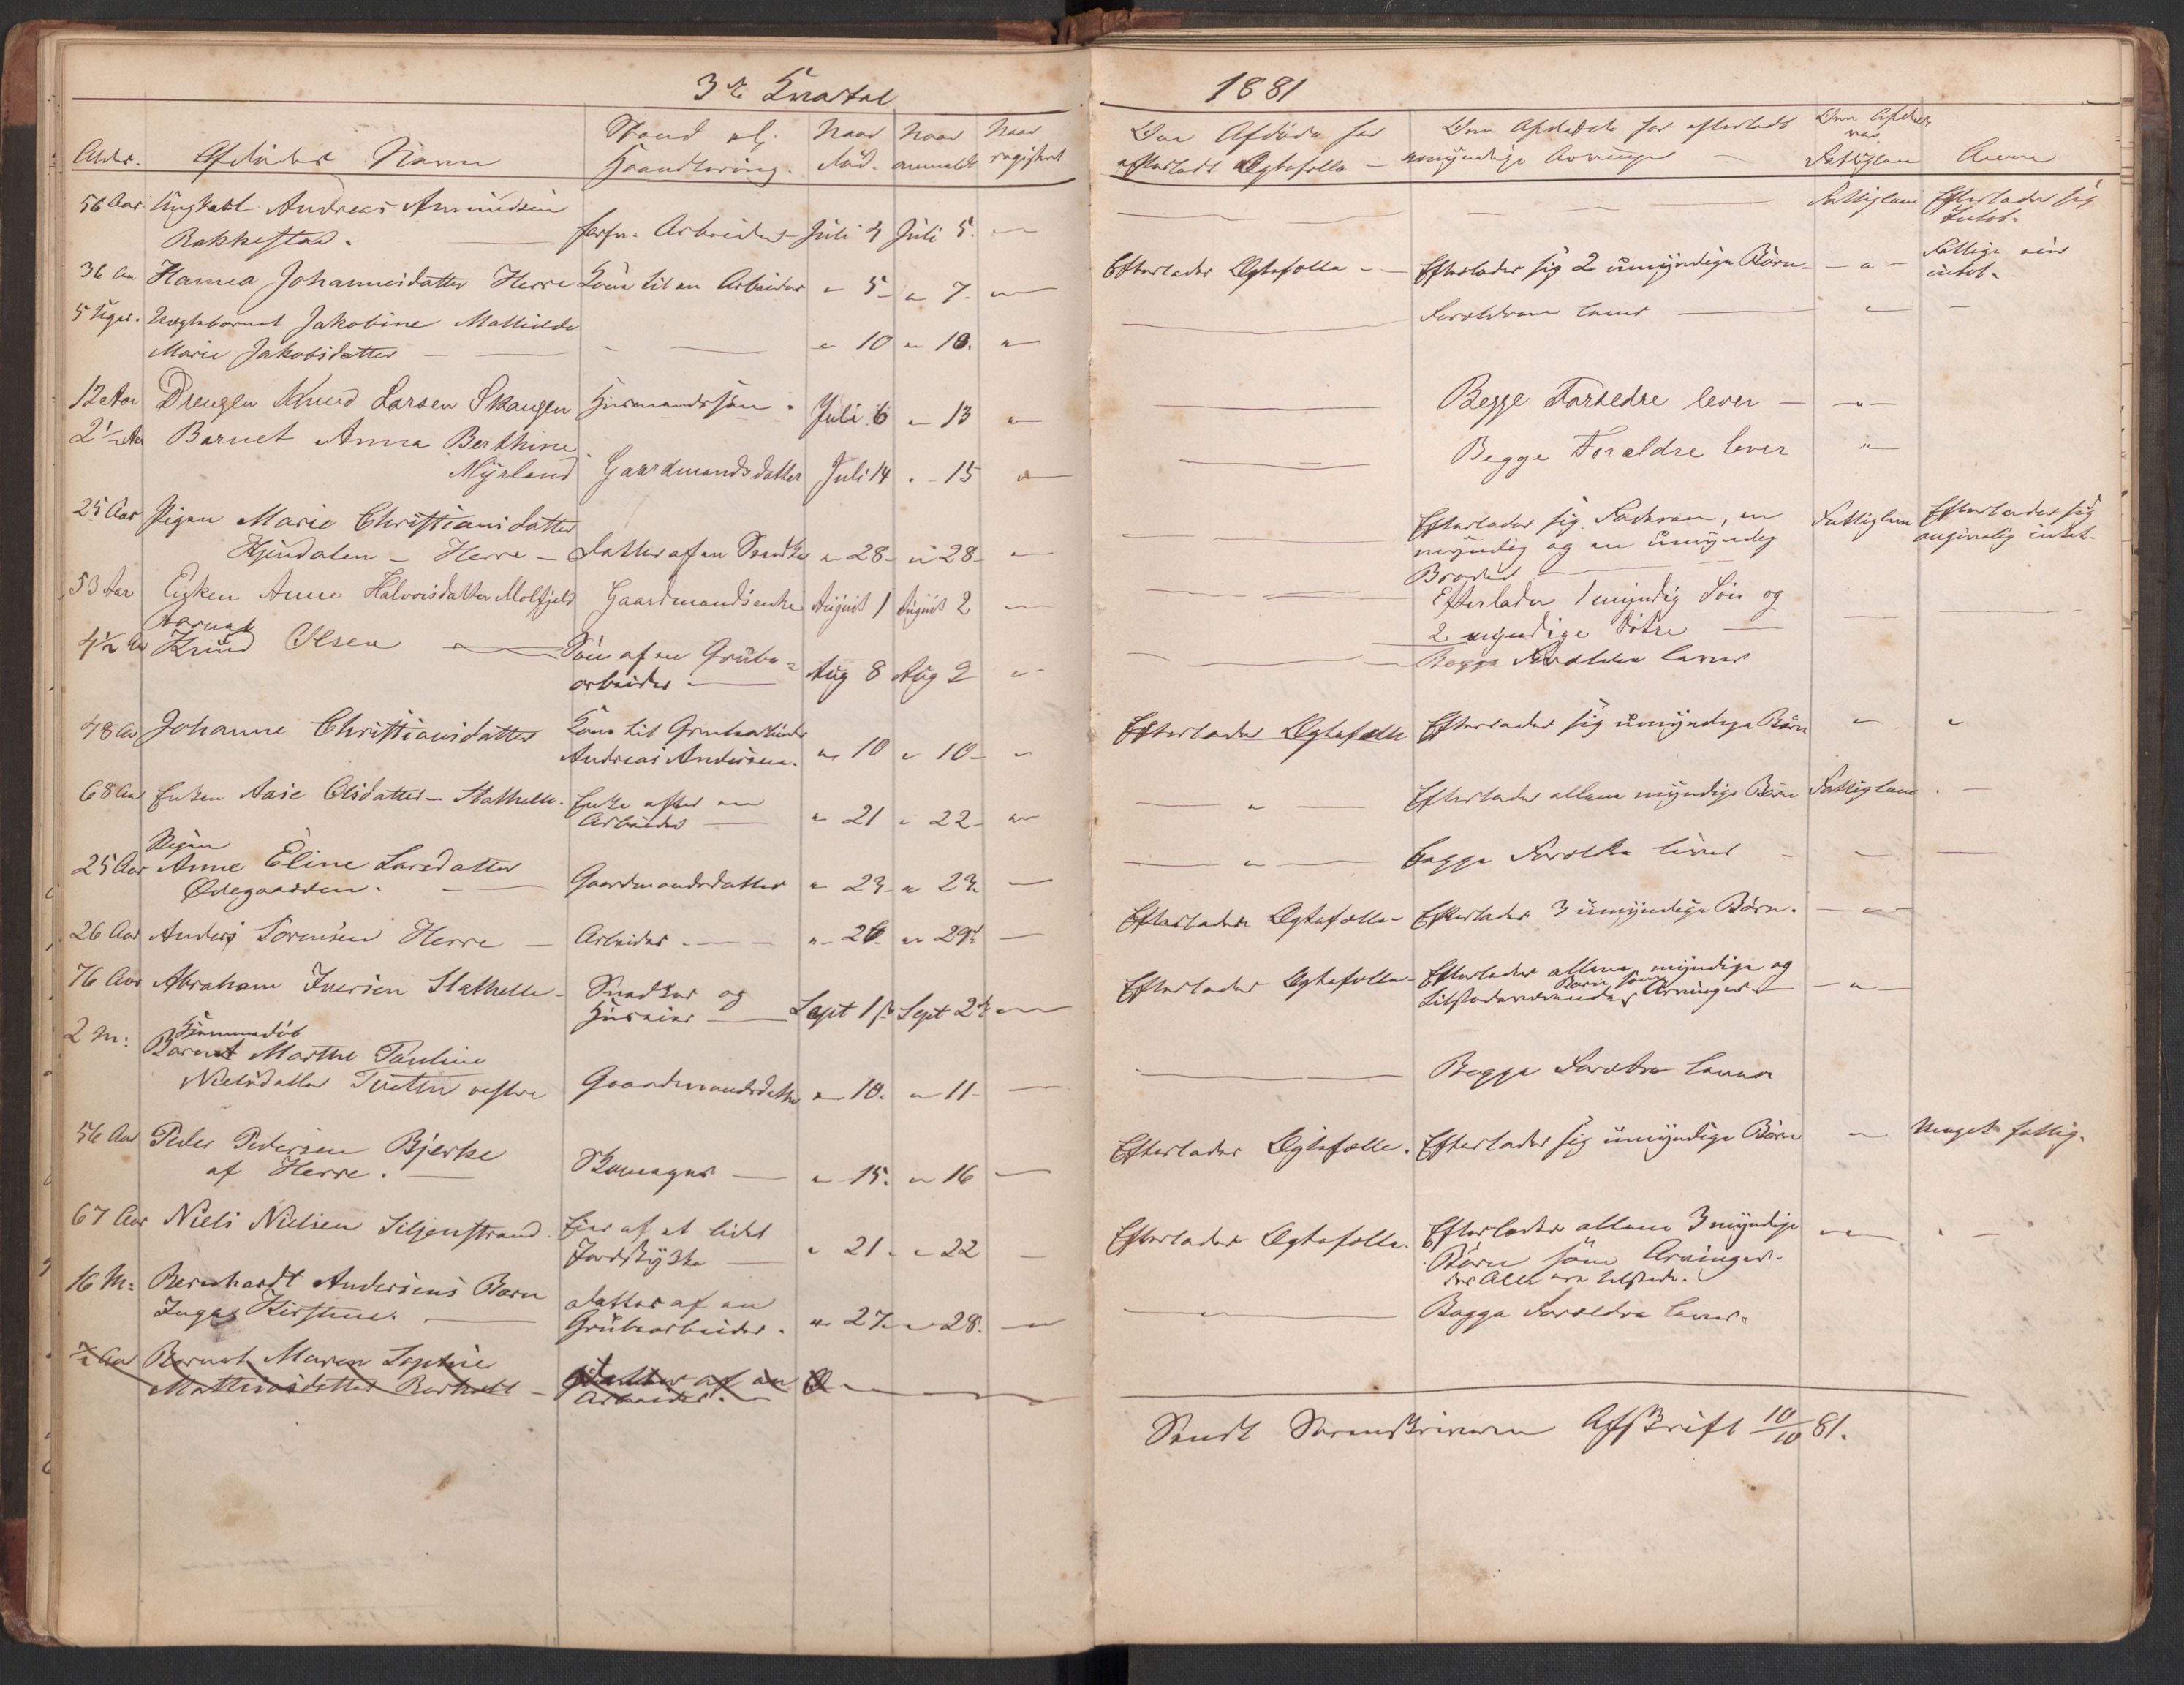 3die Kvartal
1881
Alder. Afdødes Navn Stand el. Haandtering. Naar død. Naar anmeldt Naar registreret Den Afdøde har efterladt Ægtefælle - Den Afdøde har efterladt umyndige Arvinger Den Afdøde var Fattiglem Anm
56 Aar Ungkarl Andreas Amundsen
Bakkestad. forhv. Arbeider Juli 4 Juli 5. Fattiglem Efterlader sig Intet.
36 Aar Hanna Johannesdatter Herre Kone til en Arbeider " 5 " 7. Efterlader Ægtefælle - Efterlader sig 2 umyndige Børn - " - Fattige eier intet.
5 Uger. Uægtebarnet Jakobine Mathilde
Marie Jakobsdatter " 10 " 10. " Forældrene lever
12 Aar Drengen Knud Larsen Skaugen Husmandssøn. Juli 6 " 13 " Begge Forældre lever - " -
2 1/2 Aar Barnet Anna Berthine
Myrland Gaardmandsdatter Juli 14 " 15 " Begge Forældre lever "
25 Aar Pigen Marie Christiansdatter Efterlader sig Faderen, en Fattiglem Efterlader sig
Hjendalen - Herre - Datter af en Snedker " 28 - " 28 - " myndig og en umyndig intet.
Broder
53 Aar Enken Anne Halvorsdatter Molfjeld Gaardmandsenke August 1 August 2 Efterlader 1 myndig Søn og
2 myndige Døtre
4 1/2 Aar Barnet Knud Olsen Søn af en Grube=
arbeider Aug 8 Aug 9 " Begge Forældre lever
48 Aar Johanne Christiansdatter Kone til Grubearbeider
Andreas Andersen. " 10 " 10 - " Efterlader Ægtefælle Efterlader sig umyndige Børn " "
68 Aar Enken Aase Olsdatter - Stathelle. Enke efter en
Arbeider " 21 " 22 - " " Efterlader allene myndige Børn Fattiglem. -
Pigen
25 Aar Anne Eline Larsdatter
Ødegaarden. Gaardmandsdatter " 23 - " 23. " Begge Forældre lever -
26 Aar Anders Sørensen Herre - Arbeider. " 26. " 29. Efterlader Ægtefælle - Efterlader 3 umyndige Børn. - " -
76 Aar Abraham Iversen Stathelle - Snedker og
Huseier Sept 1ste Sept 2den Efterlader Ægtefælle - Efterlader allene myndige og
Børn som
tilstedeværende Arvinger. - " -
2 M: Hjemmedøb
Barnet Marthe Pauline
Nielsdatter Tveten vestre Gaardmandsdatter " 10. " 11 - Begge Forældre lever
56 Aar Peder Pedersen Bjerke
af Herre. Skomager " 15. " 16 Efterlader Ægtefælle. Efterlader sig umyndige Børn " Meget fattig.
67 Aar Niels Nielsen Siljenstrand. Eier af et lidet
Jordstykke " 21. " 22 Efterlader Ægtefælle. Efterlader allene 3 myndige
Børn som Arvinger.
der Alle ere tilstede.
16 M: Bernhardt Andersens Barn
Inga Kirstine. Datter af en
Grubearbeider. " 27. " 28. Begge Forældre lever.
1/2 Aar Barnet Maren Sophie
Mathiasdatter - Datter af en
Arbeider.
Sendt Sorenskriveren Afskrift 10/10 81.